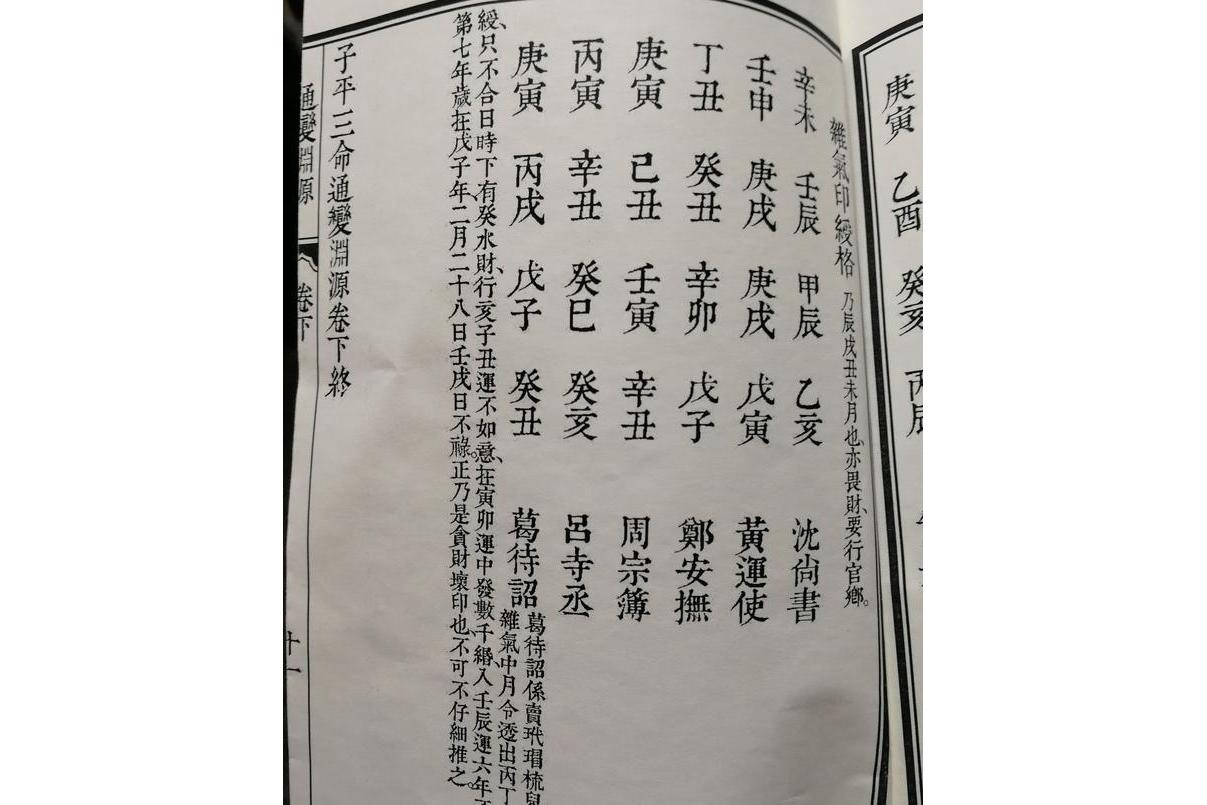 庚寅 乙酉 癸亥 丙辰
雜氣印綬格 乃辰戌丑未月也、亦畏財、要行官鄉。
辛未 壬辰 甲辰 乙亥 沈尙書
壬申 庚戌 庚戌 戊寅 黃運使
丁丑 癸丑 辛卯 戊子 鄭安撫
庚寅 己丑 壬寅 辛丑 周宗簿
丙寅 辛丑 癸巳 癸亥 呂寺丞
庚寅 丙戌 戊子 癸丑 葛待詔
葛待詔係賣玳瑁梳兒
雜氣中月令透出丙丁
綬、只不合日時下有癸水財、行亥子丑運不如意、在寅卯運中發數千緡、入壬辰運六年
第七年歲在戊子年二月二十八日壬戌日不祿。正乃是貪財壞印也、不可不仔細推之。
子平三命通變淵源卷下終
通變淵源 卷下 十一